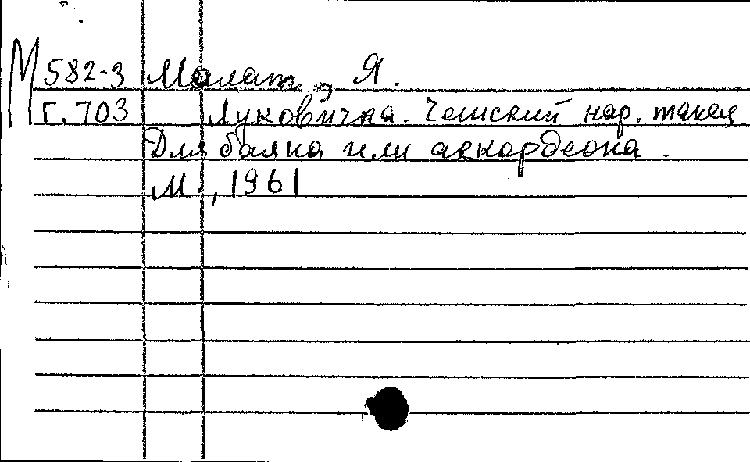 М 582-3 Малат, Я.
Г. 703 Луковичка. Чешский нар. танец
Для баяна или аккордеона.
М., 1961